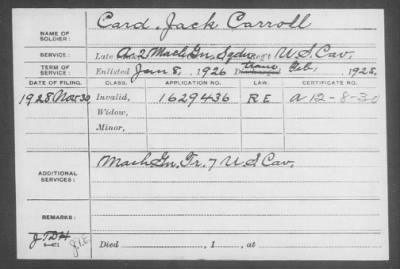 NAME OF SOLDIER: Card, Jack Carroll
SERVICE: Late A. 2 Mach. Gn. Sqdn. Reg't U.S. Cav.
TERM OF SERVICE: Enlisted Jan 8, 1926 Discharged Trans Feb, 1928.
DATE OF FILING. CLASS. APPLICATION NO. LAW. CERTIFICATE NO.
1928 Nov. 30 Invalid, 1629436 RE A 12-8-30
Widow,
Minor,
ADDITIONAL SERVICES: Mach. Gn. Tr. 7 U.S. Cav.
REMARKS:
Died , 1 , at